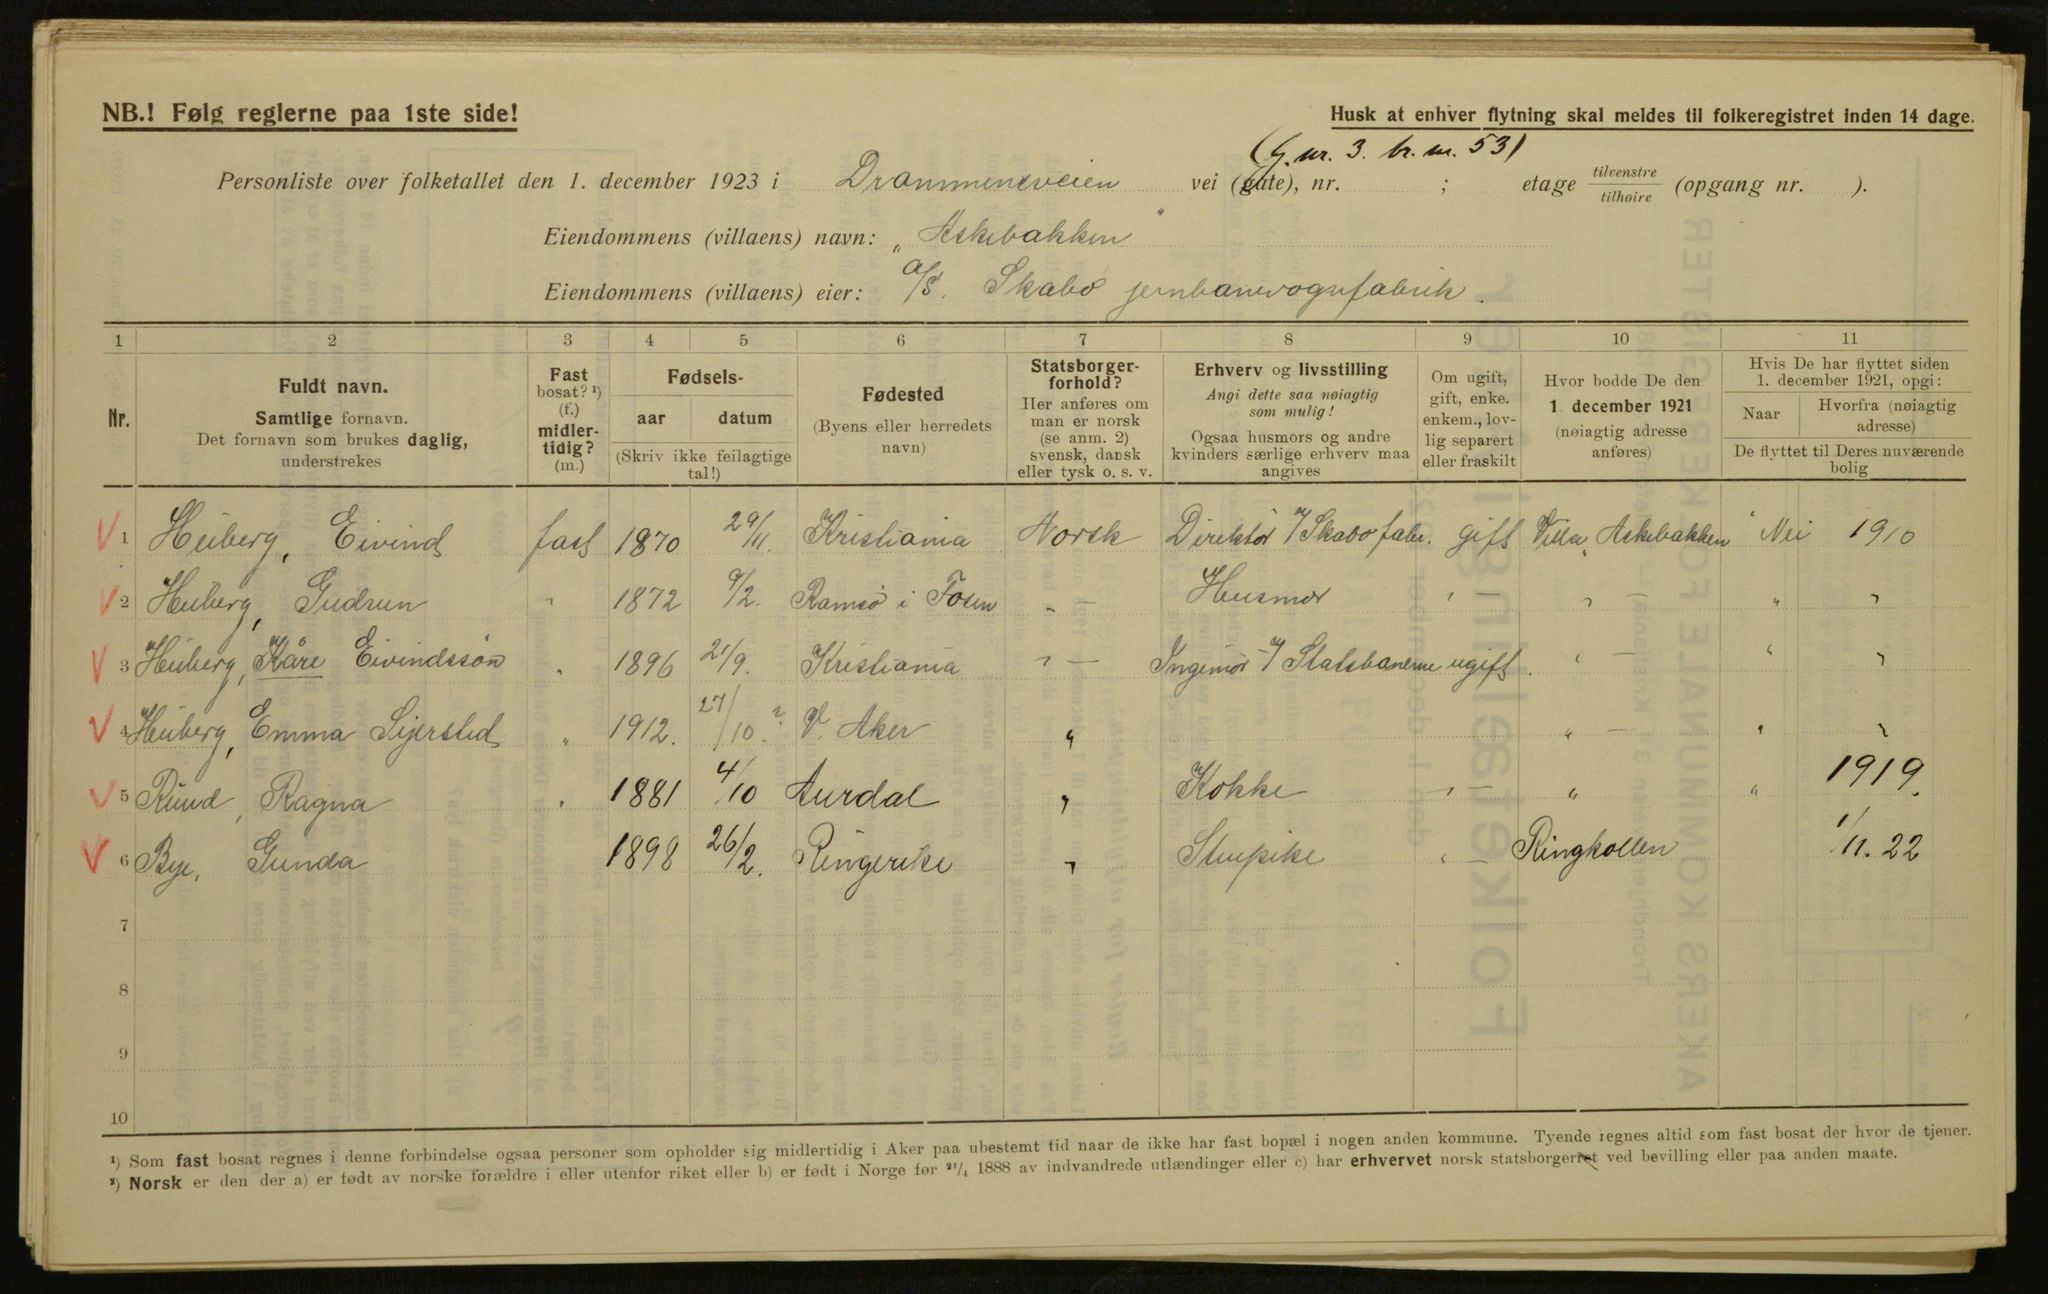 NB.! Følg reglerne paa 1ste side!
Husk at enhver flytning skal meldes til folkeregistret inden 14 dage.
(G. nr. 3. br. nr. 53)
Personliste over folketallet den 1. december 1923 i Drammensveien vei (gate), nr. ; etage tilvenstre/tilhøire (opgang nr. ).
Eiendommens (villaens) navn: „Askebakken"
Eiendommens (villaens) eier: A/S. Skabo jernbanevognfabrik.
1 2 3 4 5 6 7 8 9 10 11
Nr.
Fuldt navn.
Samtlige fornavn.
Det fornavn som brukes daglig,
understrekes
Fast
bosat? ¹)
(f.)
midler-
tidig?
(m.)
Fødsels-
aar datum
(Skriv ikke feilagtige
tal!)
Fødested
(Byens eller herredets
navn)
Statsborger-
forhold?
Her anføres om
man er norsk
(se anm. 2)
svensk, dansk
eller tysk o. s. v.
Erhverv og livsstilling
Angi dette saa nøiagtig
som mulig!
Ogsaa husmors og andre
kvinders særlige erhverv maa
angives
Om ugift,
gift, enke.
enkem., lov-
lig separert
eller fraskilt
Hvor bodde De den
1 december 1921
(nøiagtig adresse
anføres)
Hvis De har flyttet siden
1. december 1921, opgi:
Naar Hvorfra (nøiagtig
adresse)
De flyttet til Deres nuværende
bolig
1 Heiberg, Eivind fast 1870 29/11. Kristiania Norsk Direktør v/ Skabo fabr. gift Villa „Askebakken" Nei 1910
2 Heiberg, Gudrun " 1872 9/2. Ramsø i Fosen " — Husmor " " — " "
3 Heiberg, Kåre Eivindssøn " 1896 21/9. Kristiania " — Ingeniør v/ Statsbanerne ugift. " — " "
4 Heiberg, Emma Sejersted " 1912. 27/10. ? V. Aker " " — " "
5 Ruud, Ragna " 1881 4/10 Aurdal " Kokke " — " " 1919.
6 Bye, Gunda 1898 26/2. Ringerike " Stuepike " — Ringkollen 1/11. 22
7
8
9
10
¹) Som fast bosat regnes i denne forbindelse ogsaa personer som opholder sig midlertidig i Aker paa ubestemt tid naar de ikke har fast bopæl i nogen anden kommune. Tyende regnes altid som fast bosat der hvor de tjener.
²) Norsk er den der a) er født av norske forældre i eller utenfor riket eller b) er født i Norge før ²¹/₄ 1888 av indvandrede utlændinger eller c) har erhvervet norsk statsborgerret ved bevilling eller paa anden maate.